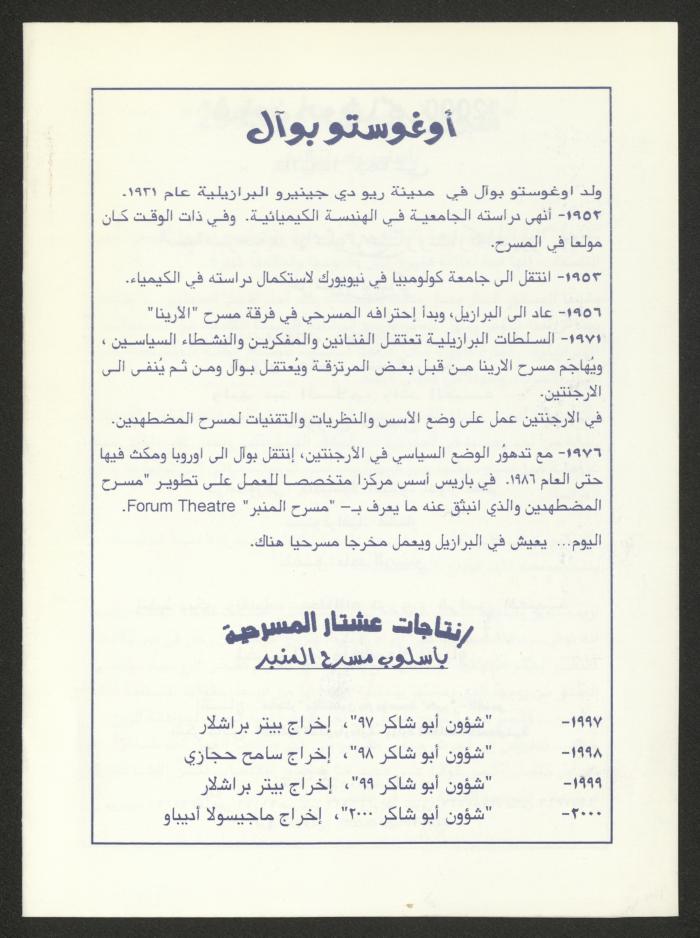 أوغوستو بوآل
ولد اوغوستو بوآل في مدينة ريو دي جينيرو البرازيلية عام ١٩٣١.
١٩٥٢- أنهى دراسته الجامعية في الهندسة الكيميائية. وفي ذات الوقت كان
مولعا في المسرح.
١٩٥٣- انتقل الى جامعة كولومبيا في نيويورك لاستكمال دراسته في الكيمياء.
١٩٥٦- عاد الى البرازيل، وبدأ إحترافه المسرحي في فرقة مسرح "الأرينا"
١٩٧١- السلطات البرازيلية تعتقل الفنانين والمفكرين والنشطاء السياسين ،
ويُهاجَم مسرح الارينا من قبل بعض المرتزقة ويُعتقل بوآل ومن ثم يُنفى الى
الارجنتين.
في الارجنتين عمل على وضع الأسس والنظريات والتقنيات لمسرح المضطهدين.
١٩٧٦- مع تدهور الوضع السياسي في الأرجنتين، إنتقل بوآل الى اوروبا ومكث فيها
حتى العام ١٩٨٦. في باريس أسس مركزا متخصصا للعمل على تطوير "مسرح
المضطهدين والذي انبثق عنه ما يعرف بـ– "مسرح المنبر" Forum Theatre.
اليوم... يعيش في البرازيل ويعمل مخرجا مسرحيا هناك.
إنتاجات عشتار المسرحية
بأسلوب مسرح المنبر
١٩٩٧- "شؤون أبو شاكر ٩٧"، إخراج بيتر براشلار
١٩٩٨- "شؤون أبو شاكر ٩٨"، إخراج سامح حجازي
١٩٩٩- "شؤون أبو شاكر ٩٩"، إخراج بيتر براشلار
٢٠٠٠- "شؤون أبو شاكر ٢٠٠٠"، إخراج ماجيسولا أديباو